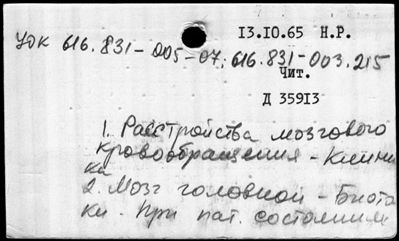 13.10.65 Н.Р.
УДК 616.831-005-07; 616.831-003.215
Чит.
Д 35913
1. Расстройства мозгового
кровообращения - Клини
ка
2. Мозг головной - Биото
ки - При пат. состояниях